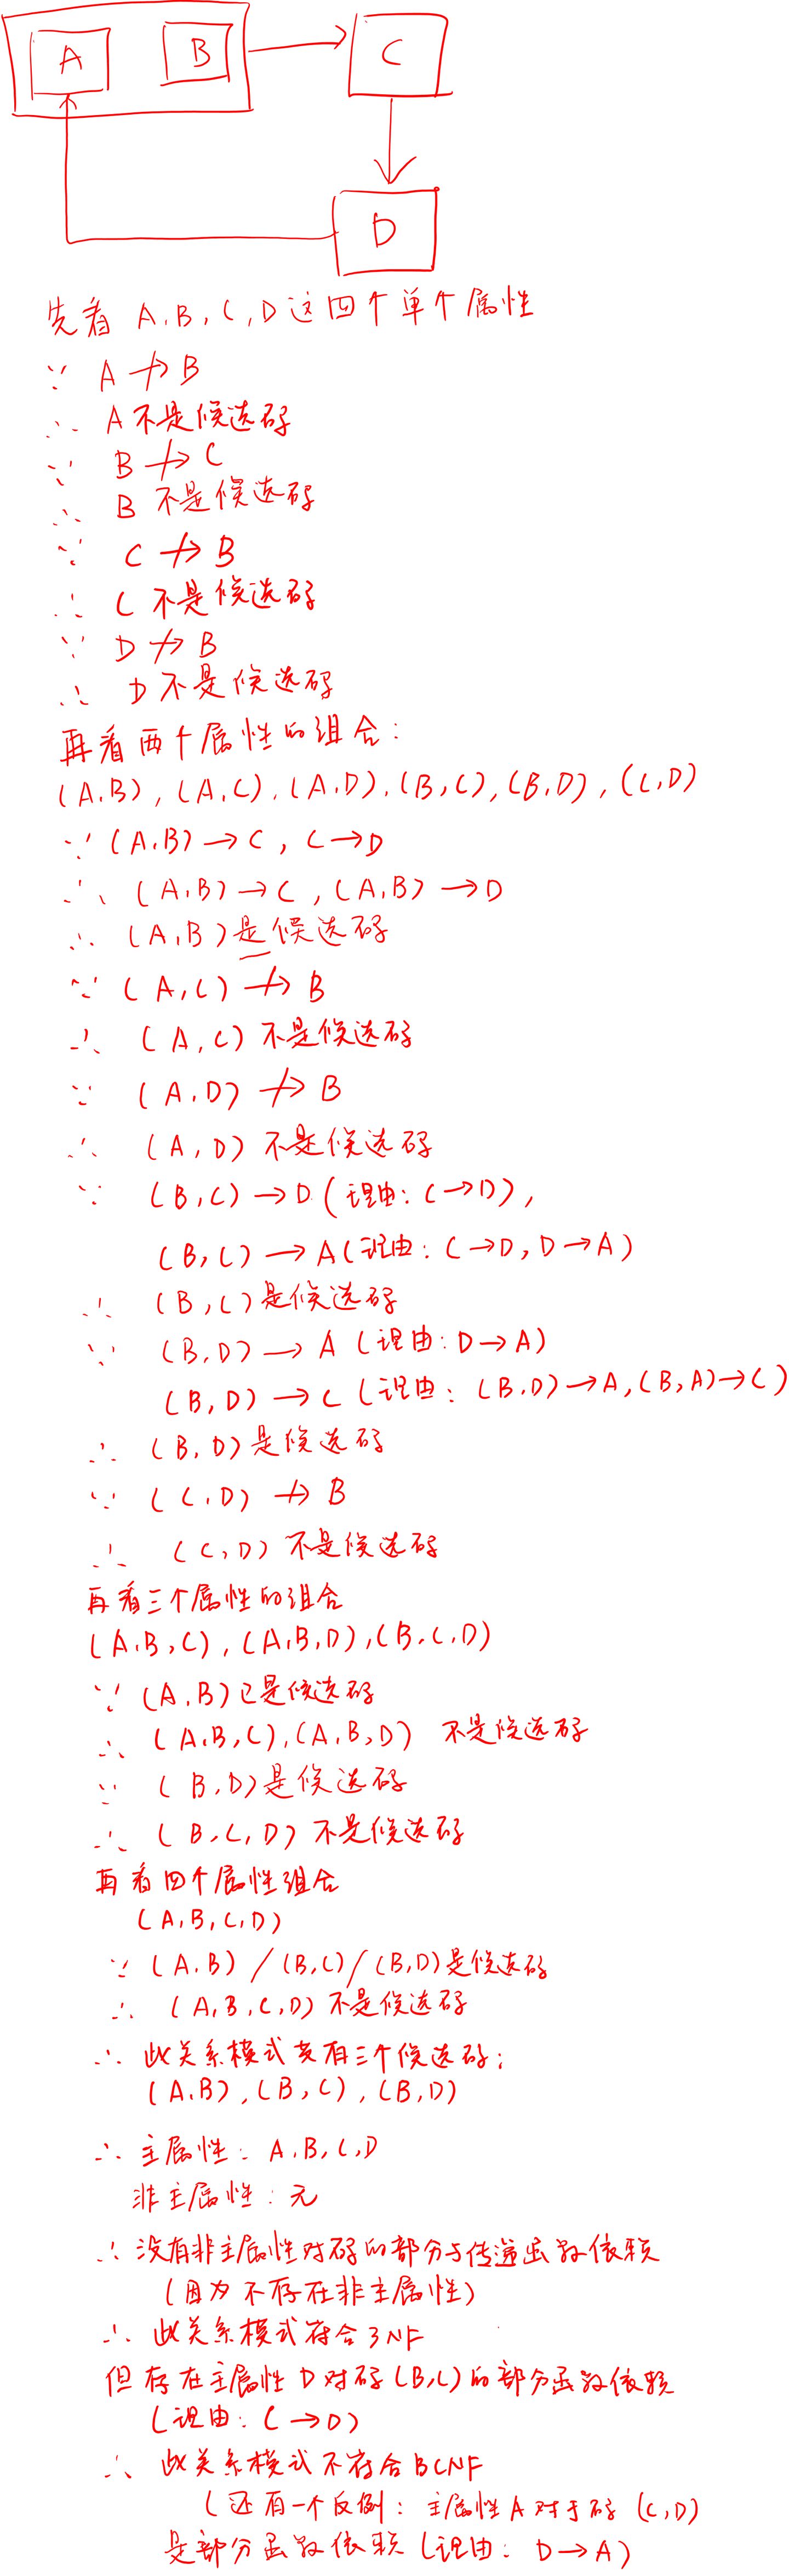 A B C
D
先看 A,B,C,D 这四个单个属性
∵ A ↛ B
∴ A不是候选码
∵ B ↛ C
∴ B 不是候选码
∵ C ↛ B
∴ C 不是候选码
∵ D ↛ B
∴ D不是候选码
再看两个属性的组合:
(A,B), (A,C), (A,D), (B,C), (B,D), (C,D)
∵ (A,B) → C, C → D
∴ (A,B) → C, (A,B) → D
∴ (A,B) 是候选码
∵ (A,C) ↛ B
∴ (A,C) 不是候选码
∵ (A,D) ↛ B
∴ (A,D) 不是候选码
∵ (B,C) → D (理由: C → D),
(B,C) → A (理由: C → D, D → A)
∴ (B,C) 是候选码
∵ (B,D) → A (理由: D → A)
(B,D) → C (理由: (B,D) → A, (B,A) → C)
∴ (B,D) 是候选码
∵ (C,D) ↛ B
∴ (C,D) 不是候选码
再看三个属性的组合
(A,B,C), (A,B,D), (B,C,D)
∵ (A,B) 已是候选码
∴ (A,B,C), (A,B,D) 不是候选码
∵ (B,D) 是候选码
∴ (B,C,D) 不是候选码
再看四个属性组合
(A,B,C,D)
∵ (A,B) / (B,C) / (B,D) 是候选码
∴ (A,B,C,D) 不是候选码
∴ 此关系模式共有三个候选码:
(A,B), (B,C), (B,D)
∴ 主属性: A,B,C,D
非主属性: 无
∴ 没有非主属性对码的部分与传递函数依赖
(因为不存在非主属性)
∴ 此关系模式符合3NF
但存在主属性 D 对码 (B,C) 的部分函数依赖
(理由: C → D)
∴ 此关系模式不符合BCNF
(还有一个反例: 主属性A对于码 (C,D)
是部分函数依赖 (理由: D → A)